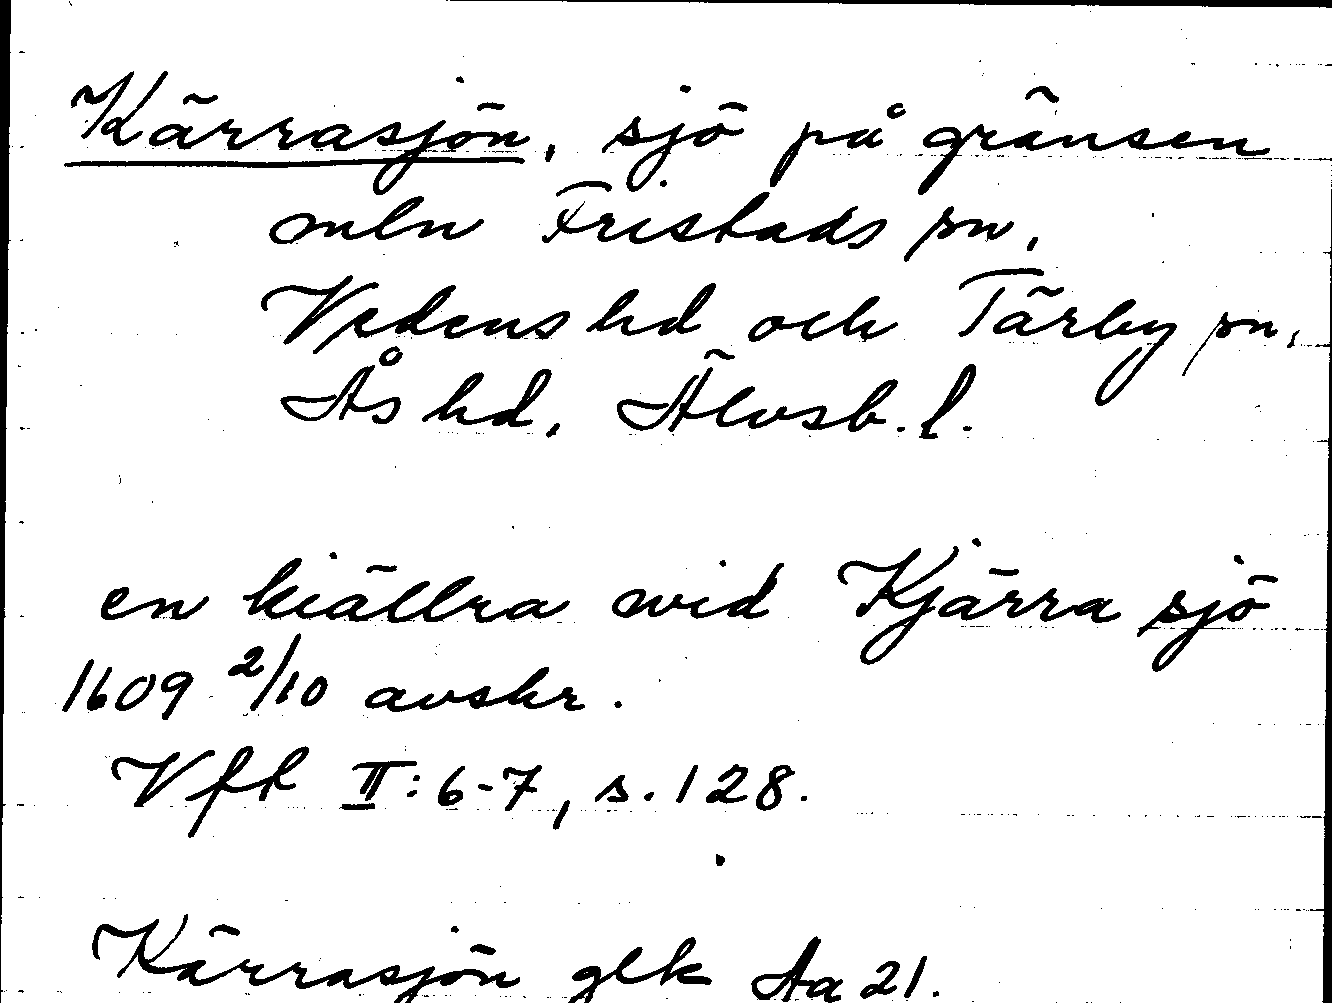 Kärrasjön, sjö på gränsen
mln Fristads sn,
Vedens hd och Tärby sn,
Ås hd, Älvsb. l.
en kiällra wid Kjärra sjö
1609 2/10 avskr.
Vft II:6-7, s. 128.
Kärrasjön glk Aa 21.